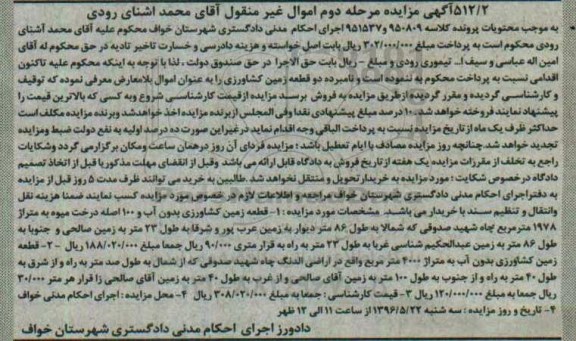 ۵۱۲/۲آگهی مزایده مرحله دوم اموال غیر منقول آقای محمد اشنای رودی
به موجب محتویات پرونده کلاسه ۹۵۰۸۰۹ و۹۵۱۵۳۷ اجرای احکام مدنی دادگستری شهرستان خواف محکوم علیه آقای محمد آشنای
رودی محکوم است به پرداخت مبلغ ۳۰۲/۰۰۰/۰۰۰ ریال بابت اصل خواسته و هزینه دادرسی و خسارت تاخیر تادیه در حق محکوم له آقای
امین اله عباسی و سیف ا... تیموری رودی و مبلغ – ریال بابت حق الاجرا در حق صندوق دولت ، لذا با توجه به اینکه محکوم علیه تاکنون
اقدامی نسبت به پرداخت محکوم به ننموده است و نامبرده دو قطعه زمین کشاورزی را به عنوان اموال بلامعارض معرفی نموده که توقیف
و کارشناسی گردیده و مقرر گردیده از طریق مزایده به فروش برسد مزایده از قیمت کارشناسی شروع وبه کسی که بالاترین قیمت را
پیشنهاد نمایند فروخته خواهد شد . ۱۰ درصد مبلغ پیشنهادی نقدا وفی المجلس از برنده مزایده اخذ خواهدشد وبرنده مزایده مکلف است
حداکثر ظرف یک ماه از تاریخ مزایده نسبت به پرداخت الباقی وجه اقدام نماید در غیر این صورت ده درصد اولیه به نفع دولت ضبط ومزایده
تجدید خواهد شد.چنانچه روز مزایده مصادف با ایام تعطیل باشد ؛ مزایده فردای آن روز در همان ساعت ومکان برگزار می گردد وشکایات
راجع به تخلف از مقررات مزایده یک هفته از تاریخ فروش به دادگاه قابل ارائه می باشد وقبل از انقضای مهلت مذکور یا قبل از اتخاذ تصمیم
دادگاه در خصوص شکایت ؛ مورد مزایده به خریدار تحویل و منتقل نخواهد شد. طالبین به خرید می توانند ظرف مدت ۵ روز قبل از مزایده
به دفتر اجرای احکام مدنی دادگستری شهرستان خواف مراجعه و اطلاعات لازم در خصوص مورد مزایده کسب نمایند ضمنا هزینه نقل
وانتقال و تنظیم سند با خریدار می باشد. مشخصات مورد مزایده : ۱- قطعه زمین کشاورزی بدون آب و ۱۰۰ اصله درخت میوه به متراژ
۱۹۷۸ مترمربع چاه شهید صدوقی که شمالا به طول ۸۶ متر دیوار به زمین عرب پور و شرقا به طول ۲۳ متر به زمین صالحی و جنوبا به
طول ۸۶ متر به زمین عبدالحکیم شناسی غربا به طول ۲۳ متر به راه به قرار متری ۹۰/۰۰۰ ریال جمعا مبلغ ۱۸۸/۰۲۰/۰۰۰ ریال -۲- قطعه
زمین کشاورزی بدون آب به متراژ ۴۰۰۰ متر مربع واقع در اراضی الدلنگ چاه شهید صدوقی که از شمال به طول صد متر به راه و از شرق به
طول ۴۰ متر به راه و از جنوب به طول ۱۰۰ متر به زمین آقای صالحی و از غرب به طول ۴۰ متر به زمین آقای صالحی زا قرار هر متر ۳۰/۰۰۰
ریال جمعا به مبلغ ۱۲۰/۰۰۰/۰۰۰ ریال ۳- قیمت کارشناسی : جمعا به مبلغ ۳۰۸/۰۲۰/۰۰۰ ریال ۴- محل مزایده : اجرای احکام مدنی خواف
۴- تاریخ و روز مزایده : سه شنبه ۱۳۹۶/۵/۲۲ از ساعت ۱۱ الی ۱۲ ظهر
دادورز اجرای احکام مدنی دادگستری شهرستان خواف